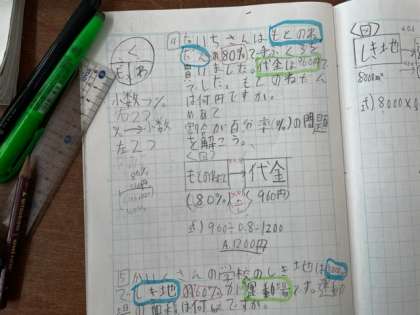 く
も わ
小数→%
右に2つ
%→小数
左に2つ
④ だいちさんはもとのね
だんの80%で手ぶくろを
買いました。代金は960円で
でした。もとのねだん
は何円ですか。
めあて
割合が百分率(%)の問題
を解こう。
<図>
もとのねだん→代金
(80%) 960円
式) 960÷0.8=1200
A.1200円
⑤ さんの学校のしき地は
しき地の60%が運動場です。運動
場の面積は何㎡ですか。
<図>
しき地
8000㎡
式) 8000×0